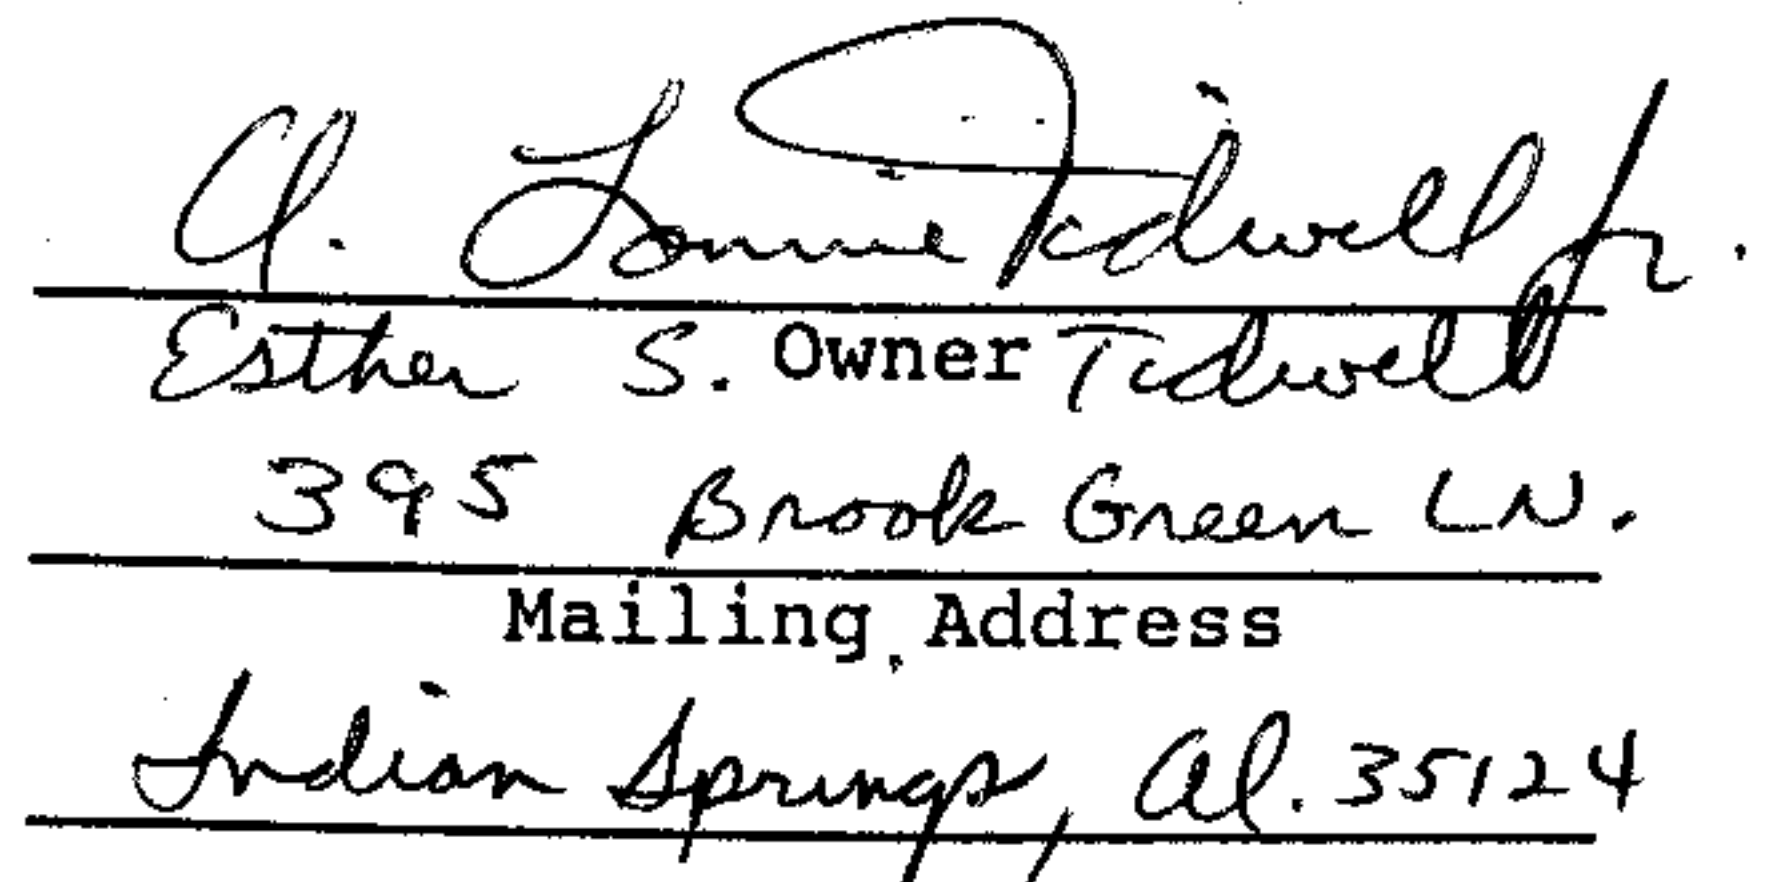 A. Lonnie Tidwell Jr.
Esther S. Owner Tidwell
395 Brook Green LN.
Mailing Address
Indian Springs, Al. 35124